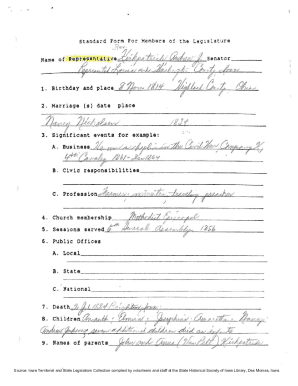 Standard Form For Members of the Legislature
Rev.
Name of Representative Kirkpatrick, Andrew J. Senator
Represented Louisa and Washington County, Iowa
1. Birthday and place 8 Nov 1814 Highland County, Ohio
2. Marriage (s) date place
Nancy Nicholson 1834
3. Significant events for example:
A. Business in the Civil War - Company K,
4th Cavalry 1861 - Nov 1864
B. Civic responsibilities
C. Profession Farmer, minister - traveling preacher
4. Church membership Methodist Episcopal
5. Sessions served 6th General Assembly 1856
6. Public Offices
A. Local
B. State
C. National
7. Death Jul 1884 Brighton, Iowa
8. Children
seven additional children died in infancy
9. Names of parents John and Anna (Van Pelt) Kirkpatrick
Source: Iowa Territorial and State Legislators Collection compiled by volunteers and staff at the State Historical Society of Iowa Library, Des Moines, Iowa.